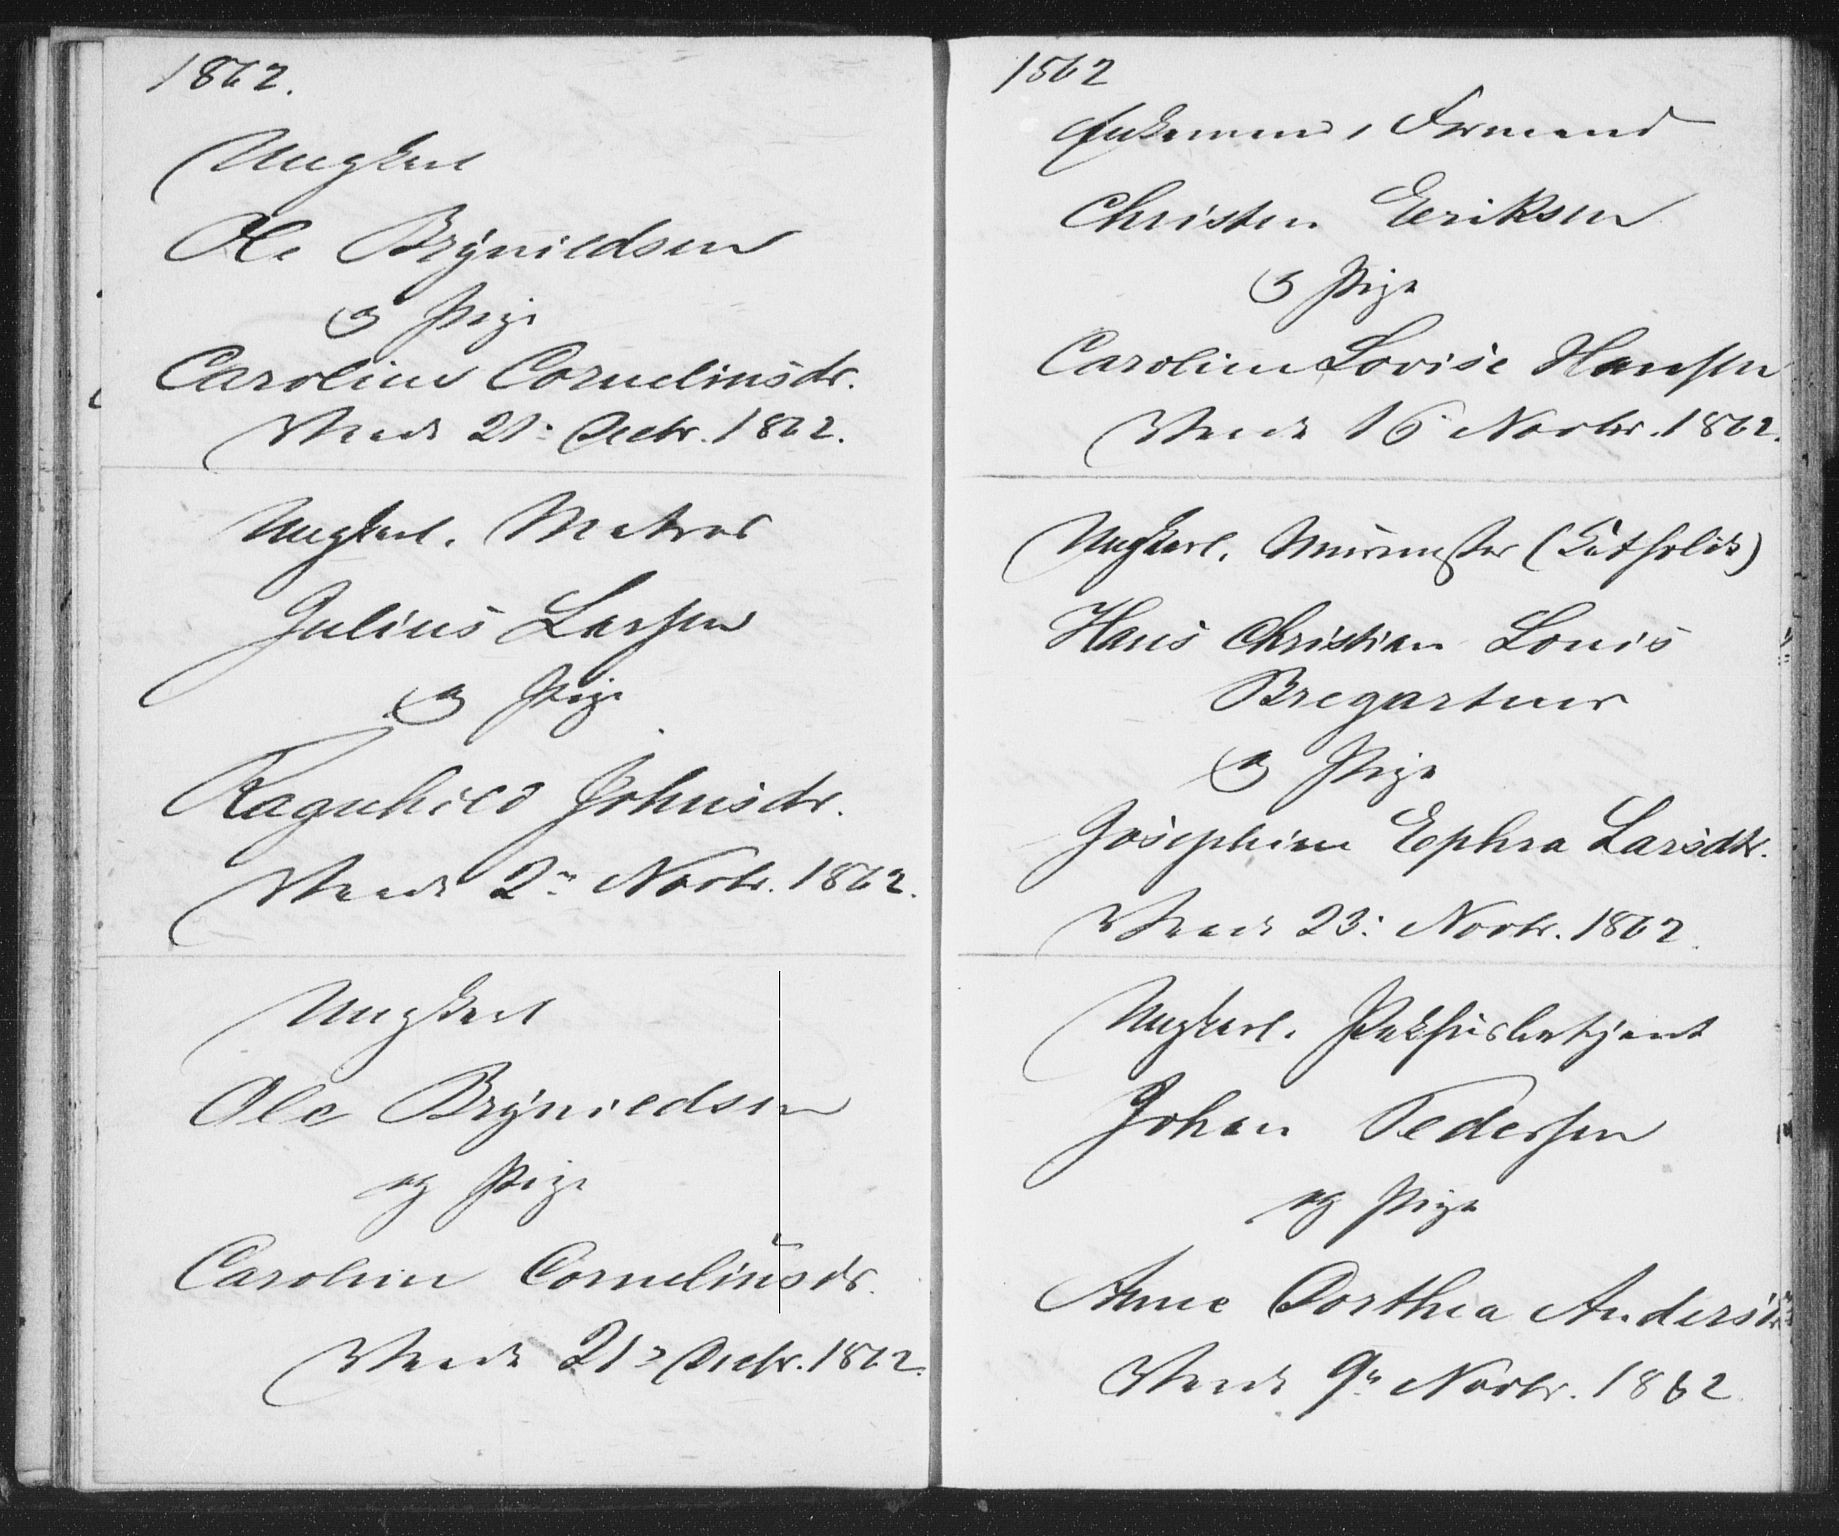 1862.
Ungkarl
Ole Brynildsen
og Pige
Caroline Corneliusdr.
Viede 21: Decbr. 1862.
Ungkarl. Matros
Julius Larsen
og Pige
Ragnhild Johnsdr.
Viede 2n Novbr. 1862.
Ungkarl
Ole Brynildsen
og Pige
Caroline Corneliusdr.
Viede 21: Decbr. 1862.
1862
Enkemand, Formand
Christen Eriksen
og Pige
Caroline Lovise Hansen
Viede 16 Novbr. 1862.
Ungkarl. Muurmester (Katholik)
Hans Christian Louis
Bregartner
og Pige
Josephine Ephra Larsdtr.
Viede 23: Novbr. 1862.
Ungkarl. Pakhusbetjent
Johan Pedersen
og Pige
Anne Dorthea Andersdr
Viede 9n Novbr. 1862